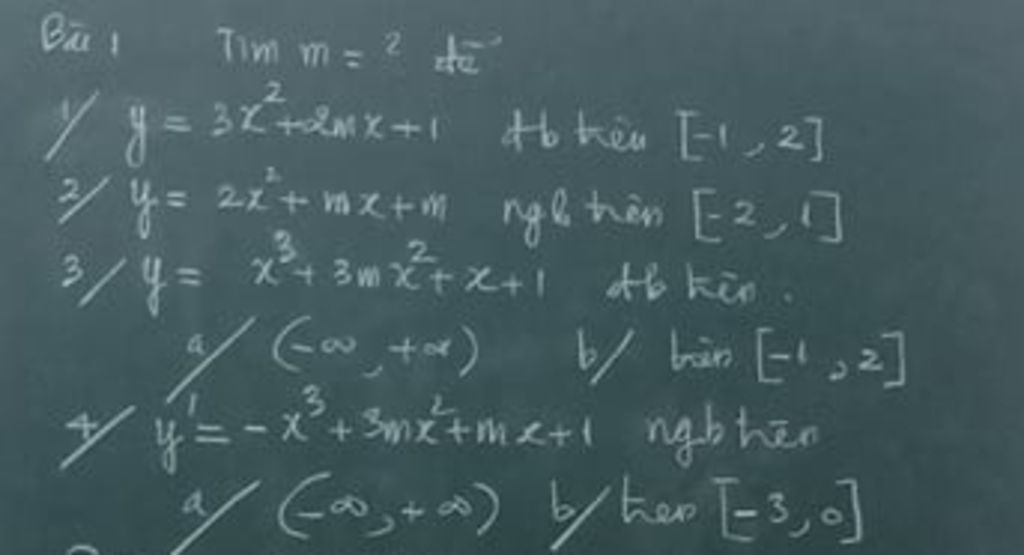 Bài 1 Tìm m = ? để
1/ y = 3x² + 2mx + 1 đb trên [-1, 2]
2/ y = 2x² + mx + m ngb trên [-2, 1]
3/ y = x³ + 3mx² + x + 1 đb trên.
a/ (-∞, +∞) b/ trên [-1, 2]
4/ y' = -x³ + 3mx² + mx + 1 ngb trên
a/ (-∞, +∞) b/ trên [-3, 0]